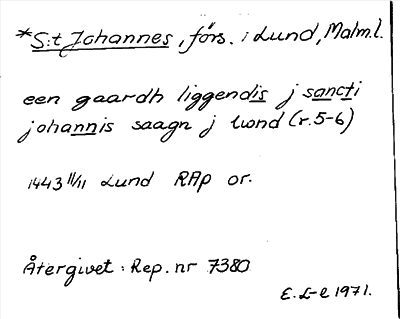 *S:t Johannes, förs. i Lund, Malm.l.
een gaardh liggendis j sancti
johannis saagn j lwnd (r.5-6)
1443 11/11 Lund RAp or.
Återgivet: Rep. nr 7380
E. L-e 1971.